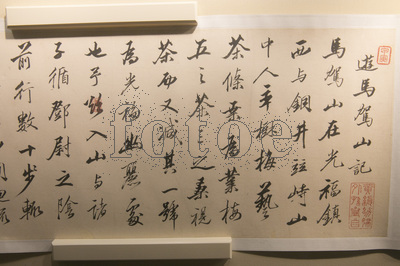 遊馬駕山記
馬駕山在光福鎮
西与銅井竝峙山
中人率樹梅藝
茶條桑為業梅
五之茶三之桑視
茶而又減其一號
為光福幽麗處
也予始入山与諸
子循鄧尉之陰
前行數十步輒
fotoe